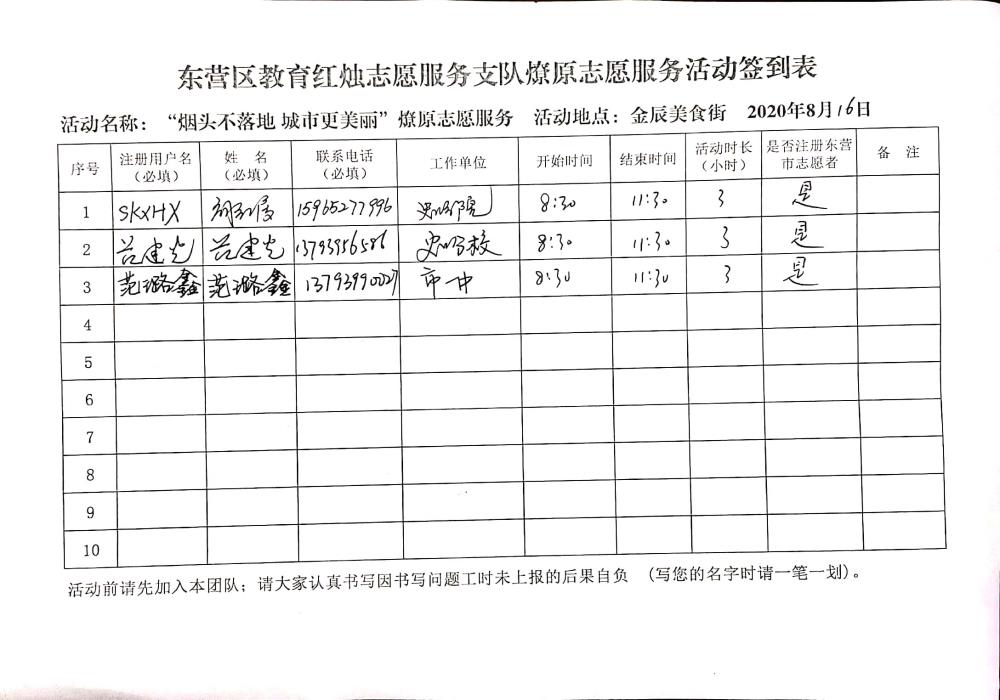 东营区教育红烛志愿服务支队燎原志愿服务活动签到表
活动名称：“烟头不落地 城市更美丽”燎原志愿服务 活动地点：金辰美食街 2020年8月16日
序号 注册用户名（必填） 姓 名（必填） 联系电话（必填） 工作单位 开始时间 结束时间 活动时长（小时） 是否注册东营市志愿者 备 注
1 SKXHX 15965277996 8:30 11:30 3 是
2 吕建光 吕建光 13793956586 8:30 11:30 3 是
3 范璐鑫 范璐鑫 13793990027 市一中 8:30 11:30 3 是
4
5
6
7
8
9
10
活动前请先加入本团队；请大家认真书写因书写问题工时未上报的后果自负 （写您的名字时请一笔一划）。